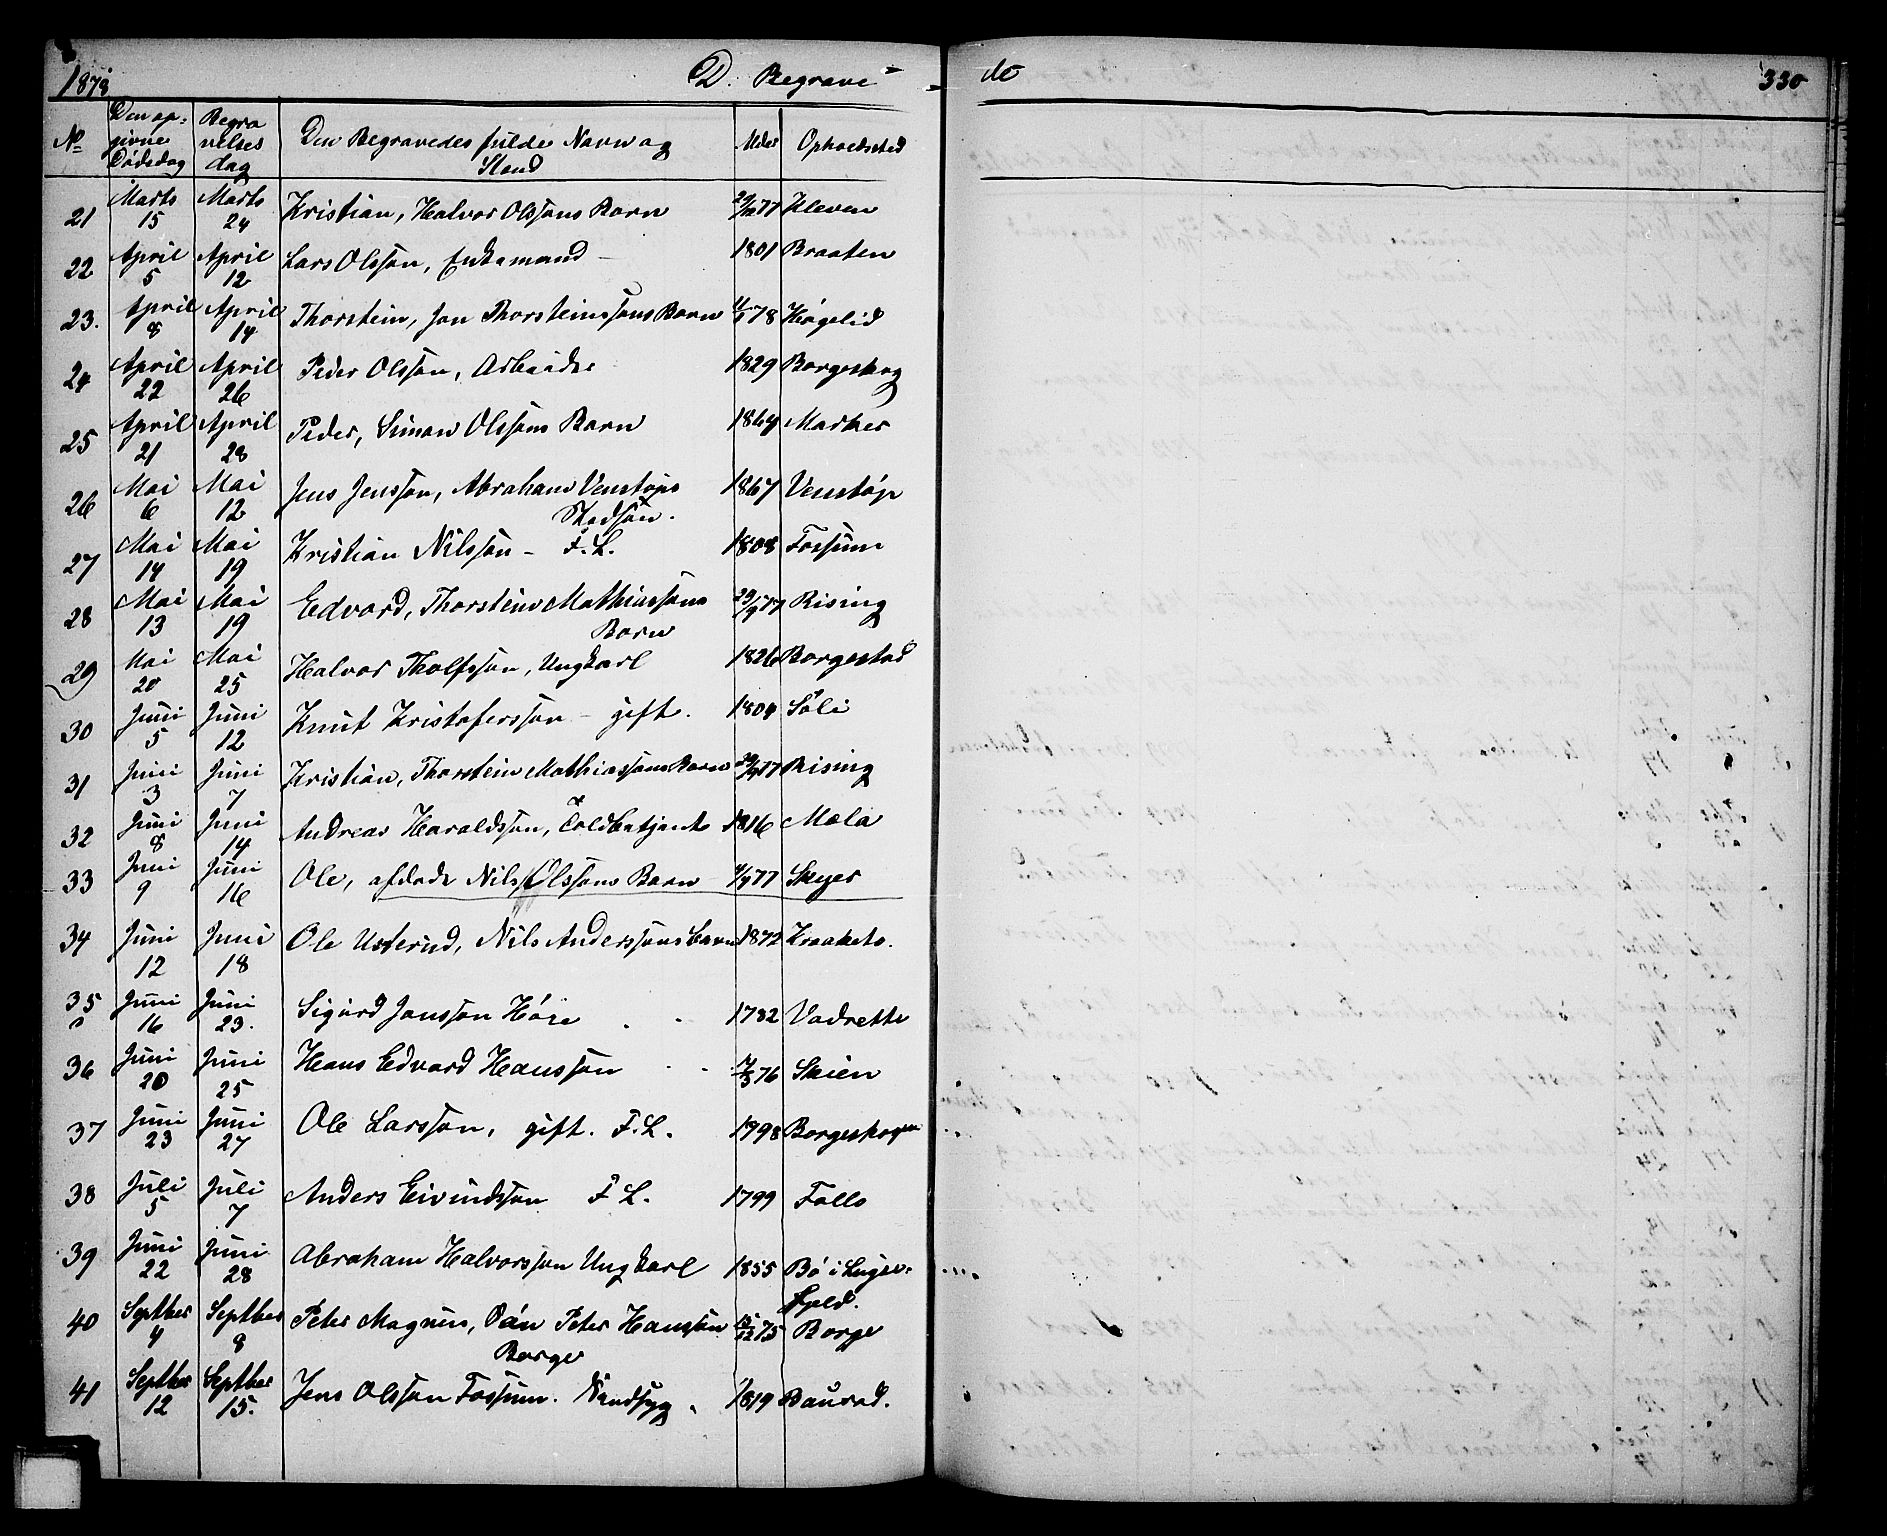 1878 D. Begrave- de 330
No Den op- givne Dødsdag Begra velses dag Den Begravedes fulde Navn og Stand Alder Opholdssted
21 Marts 15 Marts 24 Kristian, Halvor Olssøns Barn 77 Kleven
22 April 5 April 12 Lars Olssøn, Enkemand 1801 Braaten
23. April 8 April 14 Thorstein, Jon Thorsteinssøns Barn 11/1 78 Høgelid
24 April 22 April 26 Peder Olssøn, Arbeider 1829 Borgeskog
25 April 21 April 28 Peder, Simon Olssøns Barn 1864 Marker
26 Mai 6 Mai 12 Jens Jenssøn, Abraham Venstøps 1867 Venstøp
Stedsøn.
27 Mai 14 Mai 19 Kristian Nilssøn - F. L. 1808 Fossum
28 Mai 13 Mai 19 Edvard, Thorstein Mathiassøns 29/9 77 Rising
Barn
29 Mai 20 Mai 25 Halvor Tholfssøn, Ungkarl 1826 Borgestad
30 Juni 5 Juni 12 Knut Kristoferssøn - gift. 1804 Sôli
31 Juni 3 Juni 7 Kristian, Thorstein Mathiassøns Barn 29/9 77 Rising
32 Juni 8 Juni 14 Andreas Haraldssøn, Toldbetjent 1816 Mæla
33 Juni 9 Juni 16 Ole, afdøde Nils Olssøns Barn 77 Skyer
34 Juni 12 Juni 18 Ole Usterud, Nils Anderssøns barn 1872 Kraaketo.
35 Juni 16 Juni 23. Sigurd Jonssøn Høse 1782 Vadrette
36 Juni 20 Juni 25 Hans Edvard Hanssøn 7/3 76 Skien
37 Juni 23 Juni 27 Ole Larssøn, gift. F. L. 1798 Borgeskogen
38 Juli 5 Juli 7 Anders Eivindssøn F. L. 1799 Follo
39 Juni 22 Juni 28 Abraham Halvorssøn Ungkarl 1855 Bø i
40 Septber 4 Septber 8 Peter Magnus, Søn Peter Hanssøn 12 75 Borge
Borge
41 Septber 12 Septber 15. Jens Olssøn Fossum. Sindsyg. 1819 Bøverød.